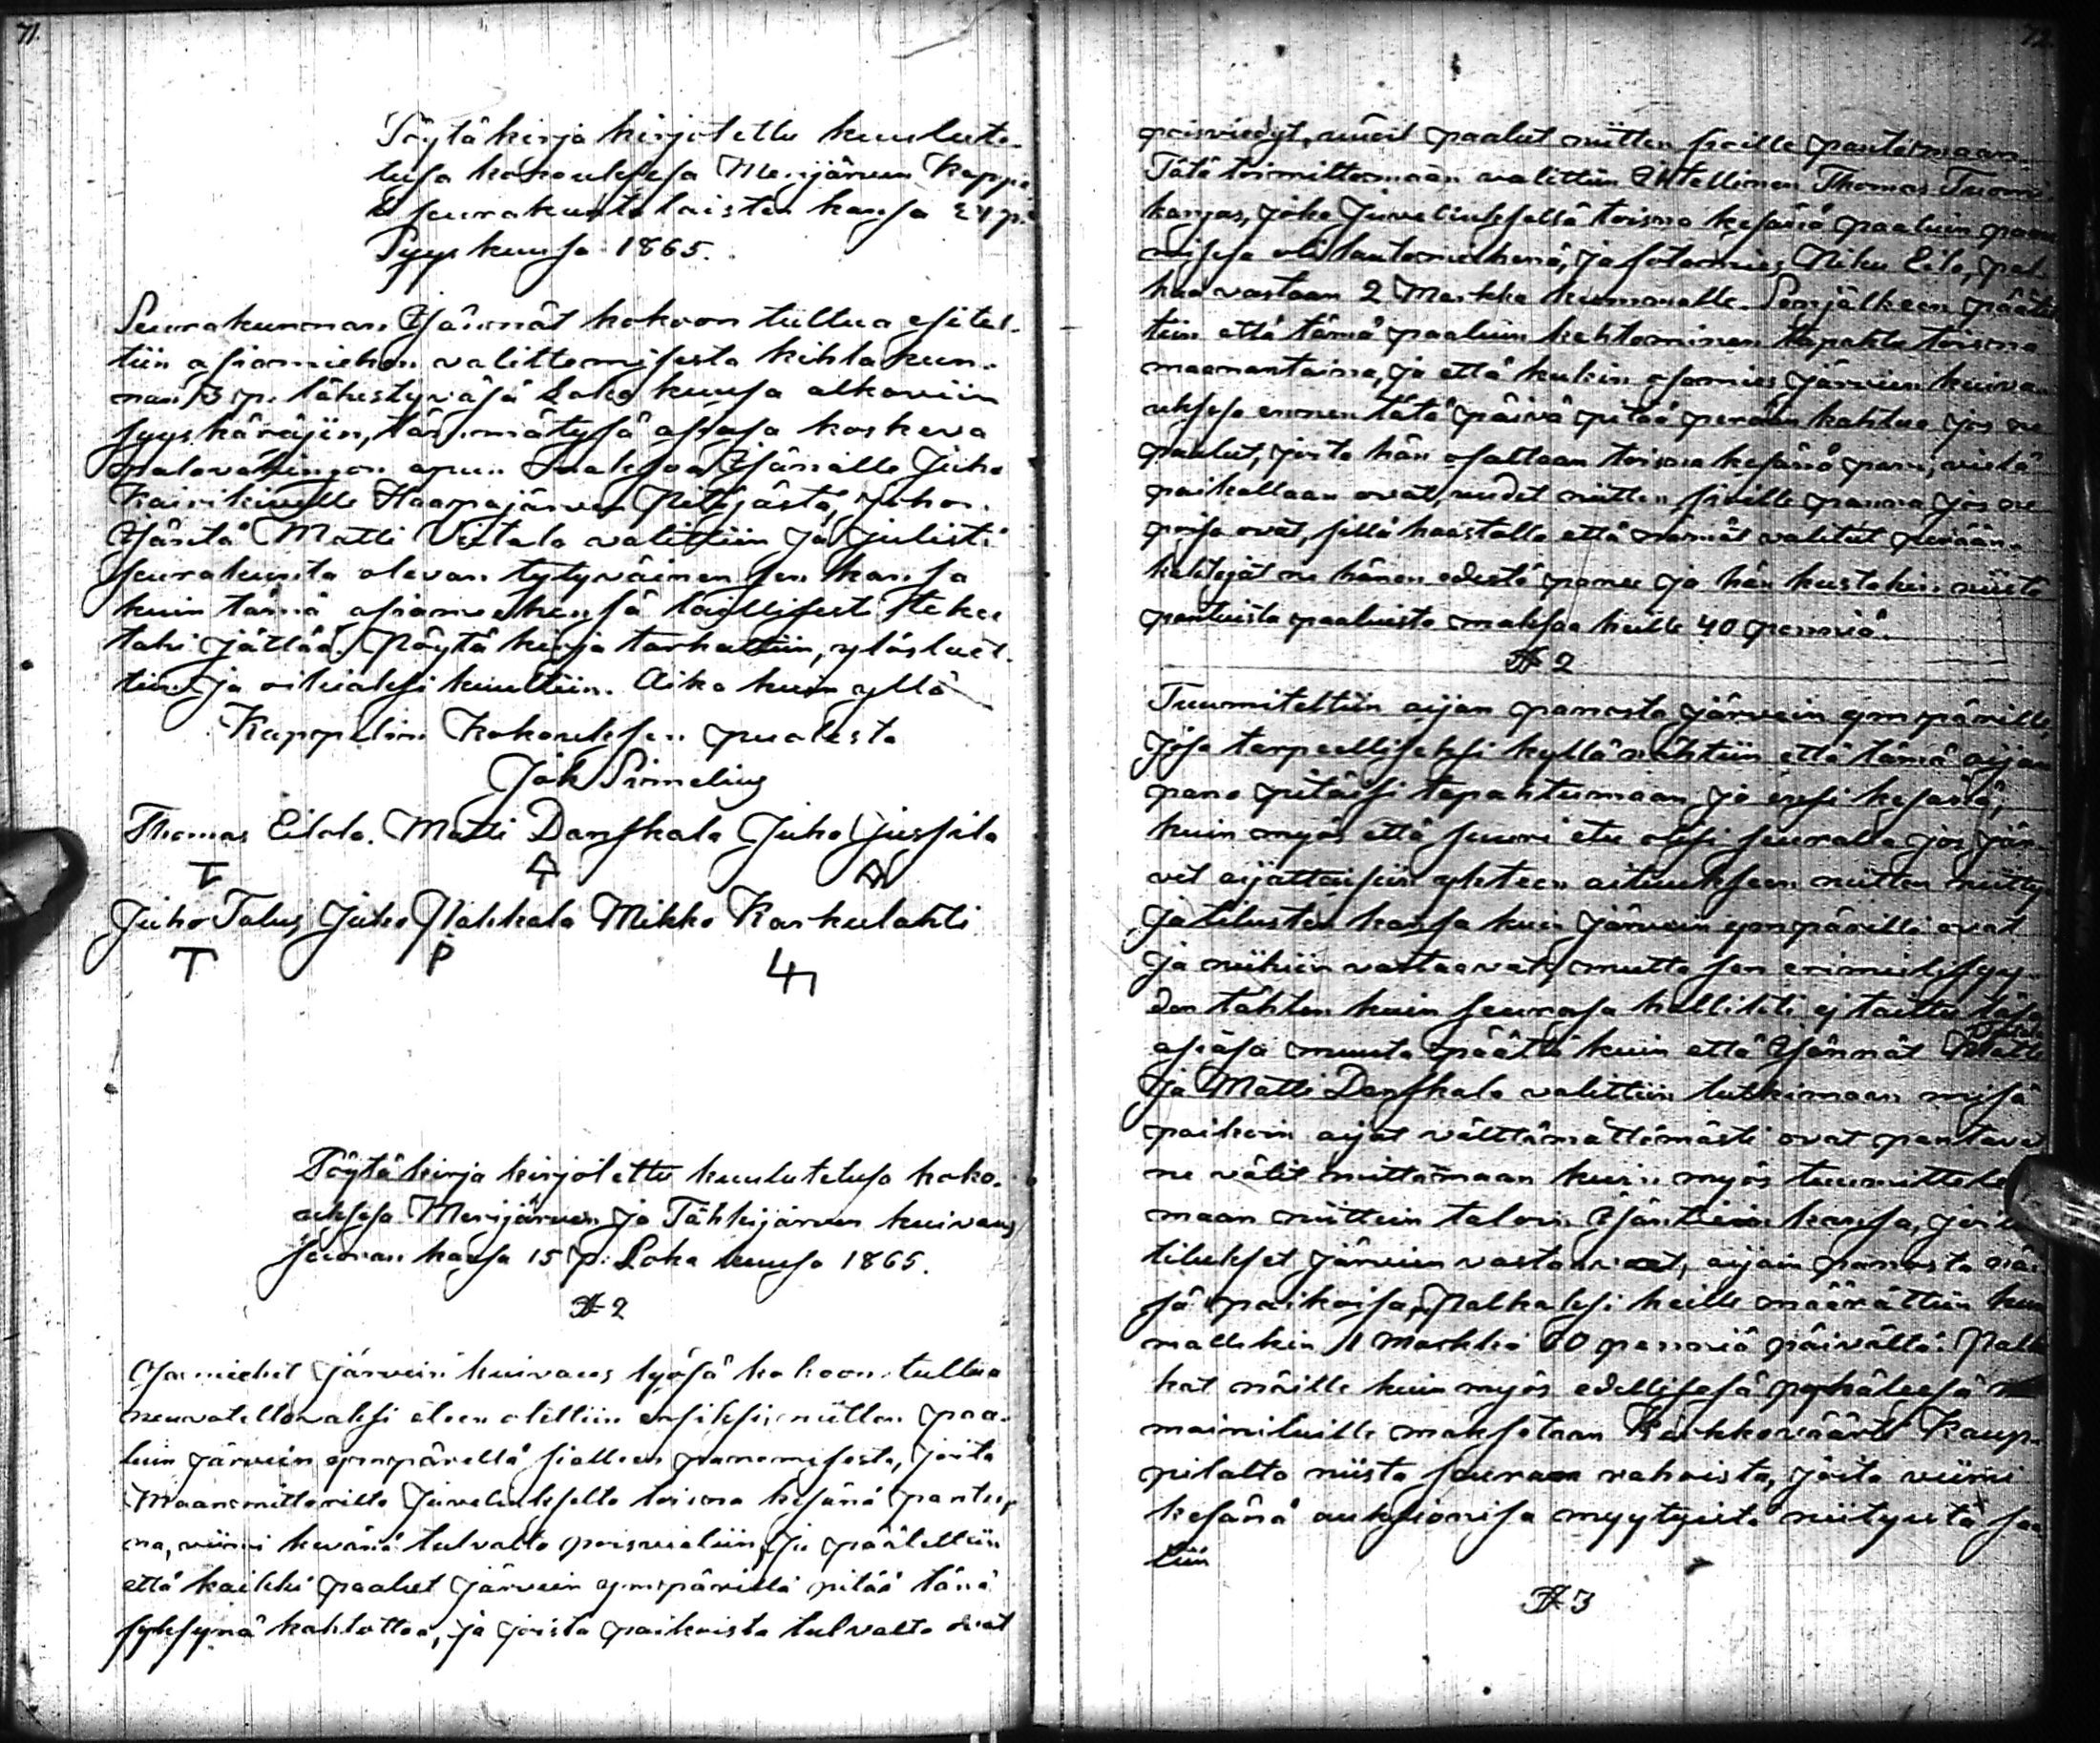 71.
Pöytäkirja kirjotettu kuulute-
tusa kokouksesa Merijärven Kappe
li seurakuntalaisten kansa 24 p.
Syyskuusa 1865.
Seurakunnan Isännät kokoon tultua esitel-
tiin asiamiehen valittemisesta kihlakun-
nan 3 p. lähestyväsä Lokakuusa alkaviin
syyskäräjiin, täsmätysä asiasa koskeva
palovahingon apun maksoa Isänälle Juho
Kairikivelle Haapajärven Pitäjästä, johon
Isäntä Matti Viitala valittiin ja julisti
seurakunta olevan tytyväinen sen kansa
kuin tämä asiamiehensä laillisesti tekee
tahi jättää. Pöytäkirja tarkattiin, ylösluet-
tiin ja oikiaksi kuultiin. Aika kuin yllä
Kappelin Kokouksen puolesta
Jak Simelius
Thomas Eilola. Matti Danskala Juho Jussila
Juho Talus Juho Pahkala Mikko Karkulahti
T P
Pöytäkirja kirjotettu kuulutetusa koko-
uksesa Merijärven ja Tähkijärven kuivaus
seuran kansa 15 p. Loka kuusa 1865.
№ 2
Osamiehet järvein kuivaus työsä kokoon tultua
neuvoteltavaksi eteen otettiin ensiksi niitten paa-
luin järvein ympärillä sialleen panemisesta, joita
Maanmittarilta Juveliukselta toisna kesänä pantuina
na, viimi kevänä tulvalta poisvietiin, ja päätettiin
että kaikki paalut järvein ympärillä pitää tänä
syksynä kahtottaa, ja joista paikoista tulvalta ovat
72.
poisviedyt, uudet paalut niitten siaille pantamaan.
Tätä toimittamaan valittiin Itellinen Thomas Tuomi-
kangas, joka Juveliuksella toisna kesänä paaluin pane
misesa oli lautamiehenä, ja sotamies Niku Eilo, pal-
kaa vastaan 2 Markka kummalle. Senjälkeen päätet
tiin että tämä paaluin kahtominen tapahtu toisna
maanantaina, ja että kukin osamies järvien kuiva-
uksesa ennen tätä päivä pitää perään kahtua jos ne
paalut, joita hän osaltaan toisna kesänä pani, vielä
paikallaan ovat, uudet niitten siaille panna jos ne
poisa ovat, sillä haastolla että nämät valitut perään-
kahtojat ne hänen edestä panee ja hän kustakin niistä
pantuista paaluista maksaa heille 40 penniä.
№ 2
Tuumiteltiin aijan panosta järvein ympärille,
josa tarpeelliseksi kyllä nähtiin että tämä aijan
pano pitäisi tapahtumaan jo ensi kesänä,
kuin myös että suuri etu olisi seuralla jos jär-
vet aijattaisiin yhteen aituukseen niitten niitty
ja tilusten kansa kuin järvein ympärillä ovat
ja niihin vastaavat, mutta sen erimielisyy-
den tähten kuin seurasa hallitsi ej taittu täsä
asiasa muuta päättä kuin että Isännät
ja Matti Danskala valittiin tutkimaan misä
paikoin aijat välttämättömästi ovat pantavat
ne välit mittamaan kuin myös tuumittele
maan niittein taloin Isäntiein kansa, joitten
tilukset järvein vastaavat, aijain panosta näi
sä paikoisa, Palkaksi heille määrättiin kum
mallekin 1 Markka 60 penniä päivältä. Pal
kat näille kuin myös edellisesä pykäläsä
mainituille maksetaan Kirkkovärti Kaup-
pilalta niistä seuran rahoista, joita viimi
kesänä auksionisa myytyistä niityistä saa
tiin
№ 3